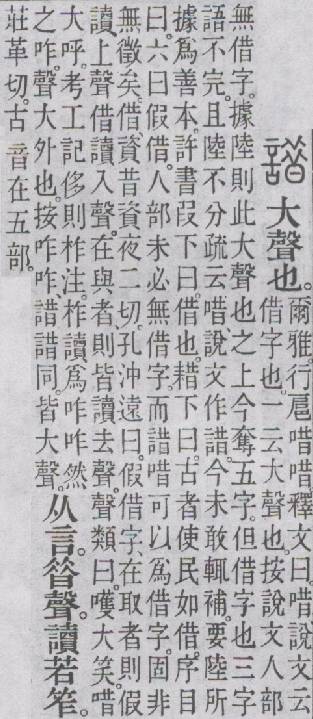 諎 大聲也。
爾雅。行扈唶唶。釋文曰。唶、說文云
借字也。一云大聲也。按說文人部
無借字。據陸則此大聲也之上今奪五字。但借字也三字
語不完。且陸不分疏云唶、說文作諎。今未敢輒補。要陸所
據爲善本。許書叚下曰。借也。耤下曰。古者使民如借。序目
曰。六曰假借。人部未必無借字。而諎唶可以爲借字。固非
無徵矣。借、資昔資夜二切。孔沖遠曰。假借字、在取者則假
讀上聲、借讀入聲。在與者、則皆讀去聲。聲類曰。嚄、大笑。唶、
大呼。考工記侈則柞注。柞讀爲咋咋然
之咋。聲大外也。按咋咋、諎諎同。皆大聲。
从言。㫺聲。讀若笮。
莊革切。古
音在五部。